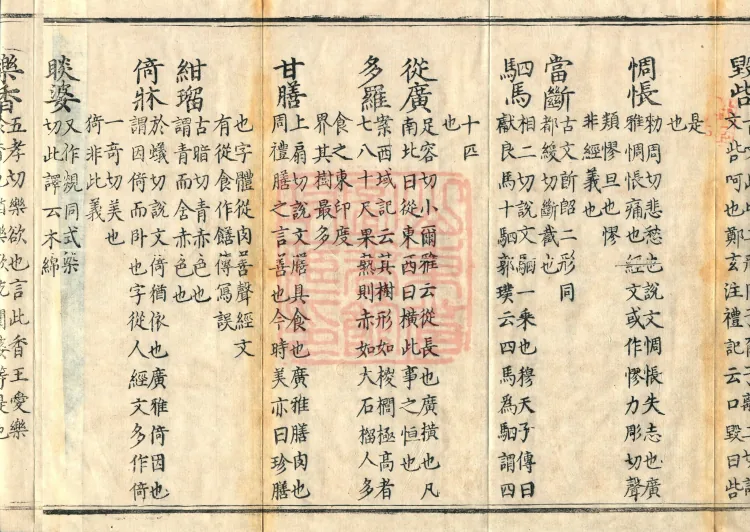 毀呰
文呰呵也鄭玄注禮記云口毀曰呰
是
也
惆悵
勑周切悲愁也說文惆悵失志也廣
雅惆悵痛也經文或作憀力彫切聲
類憀旦也憀
非經義也
當斷
古文㫁𠸿二形同
都緩切斷截也
駟馬
相二切說文駟一乘也穆天子傳曰
獻良馬十駟郭璞云四馬為駟謂四
十匹
也
從廣
足容切小爾雅云從長也廣橫也凡
南北曰從東西曰橫此事之恒也
多羅
案西域記云其樹形如椶櫚極高者
七八十尺果熟則赤如大石榴人多
食之東印度
界其樹最多
甘膳
上扇切說文膳具食也廣雅膳肉也
周禮膳之言善也今時美亦曰珍膳
也字體從肉善聲經文
有從食作饍傳寫誤
紺瑠
古暗切青赤色也
謂青而含赤色也
倚牀
於蟻切說文倚猶依也廣雅倚因也
謂因倚而卧也字從人經文多作徛
一奇切美也
徛非此義
睒婆
又作覢同式染
切此譯云木綿
樂香
五孝切樂欲也言此香王愛樂